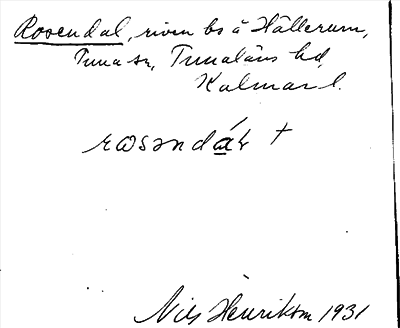 Rosendal, riven bs å Hällerum,
Tuna sn, Tunaläns hd,
Kalmar l.
Nils Henrikson 1931